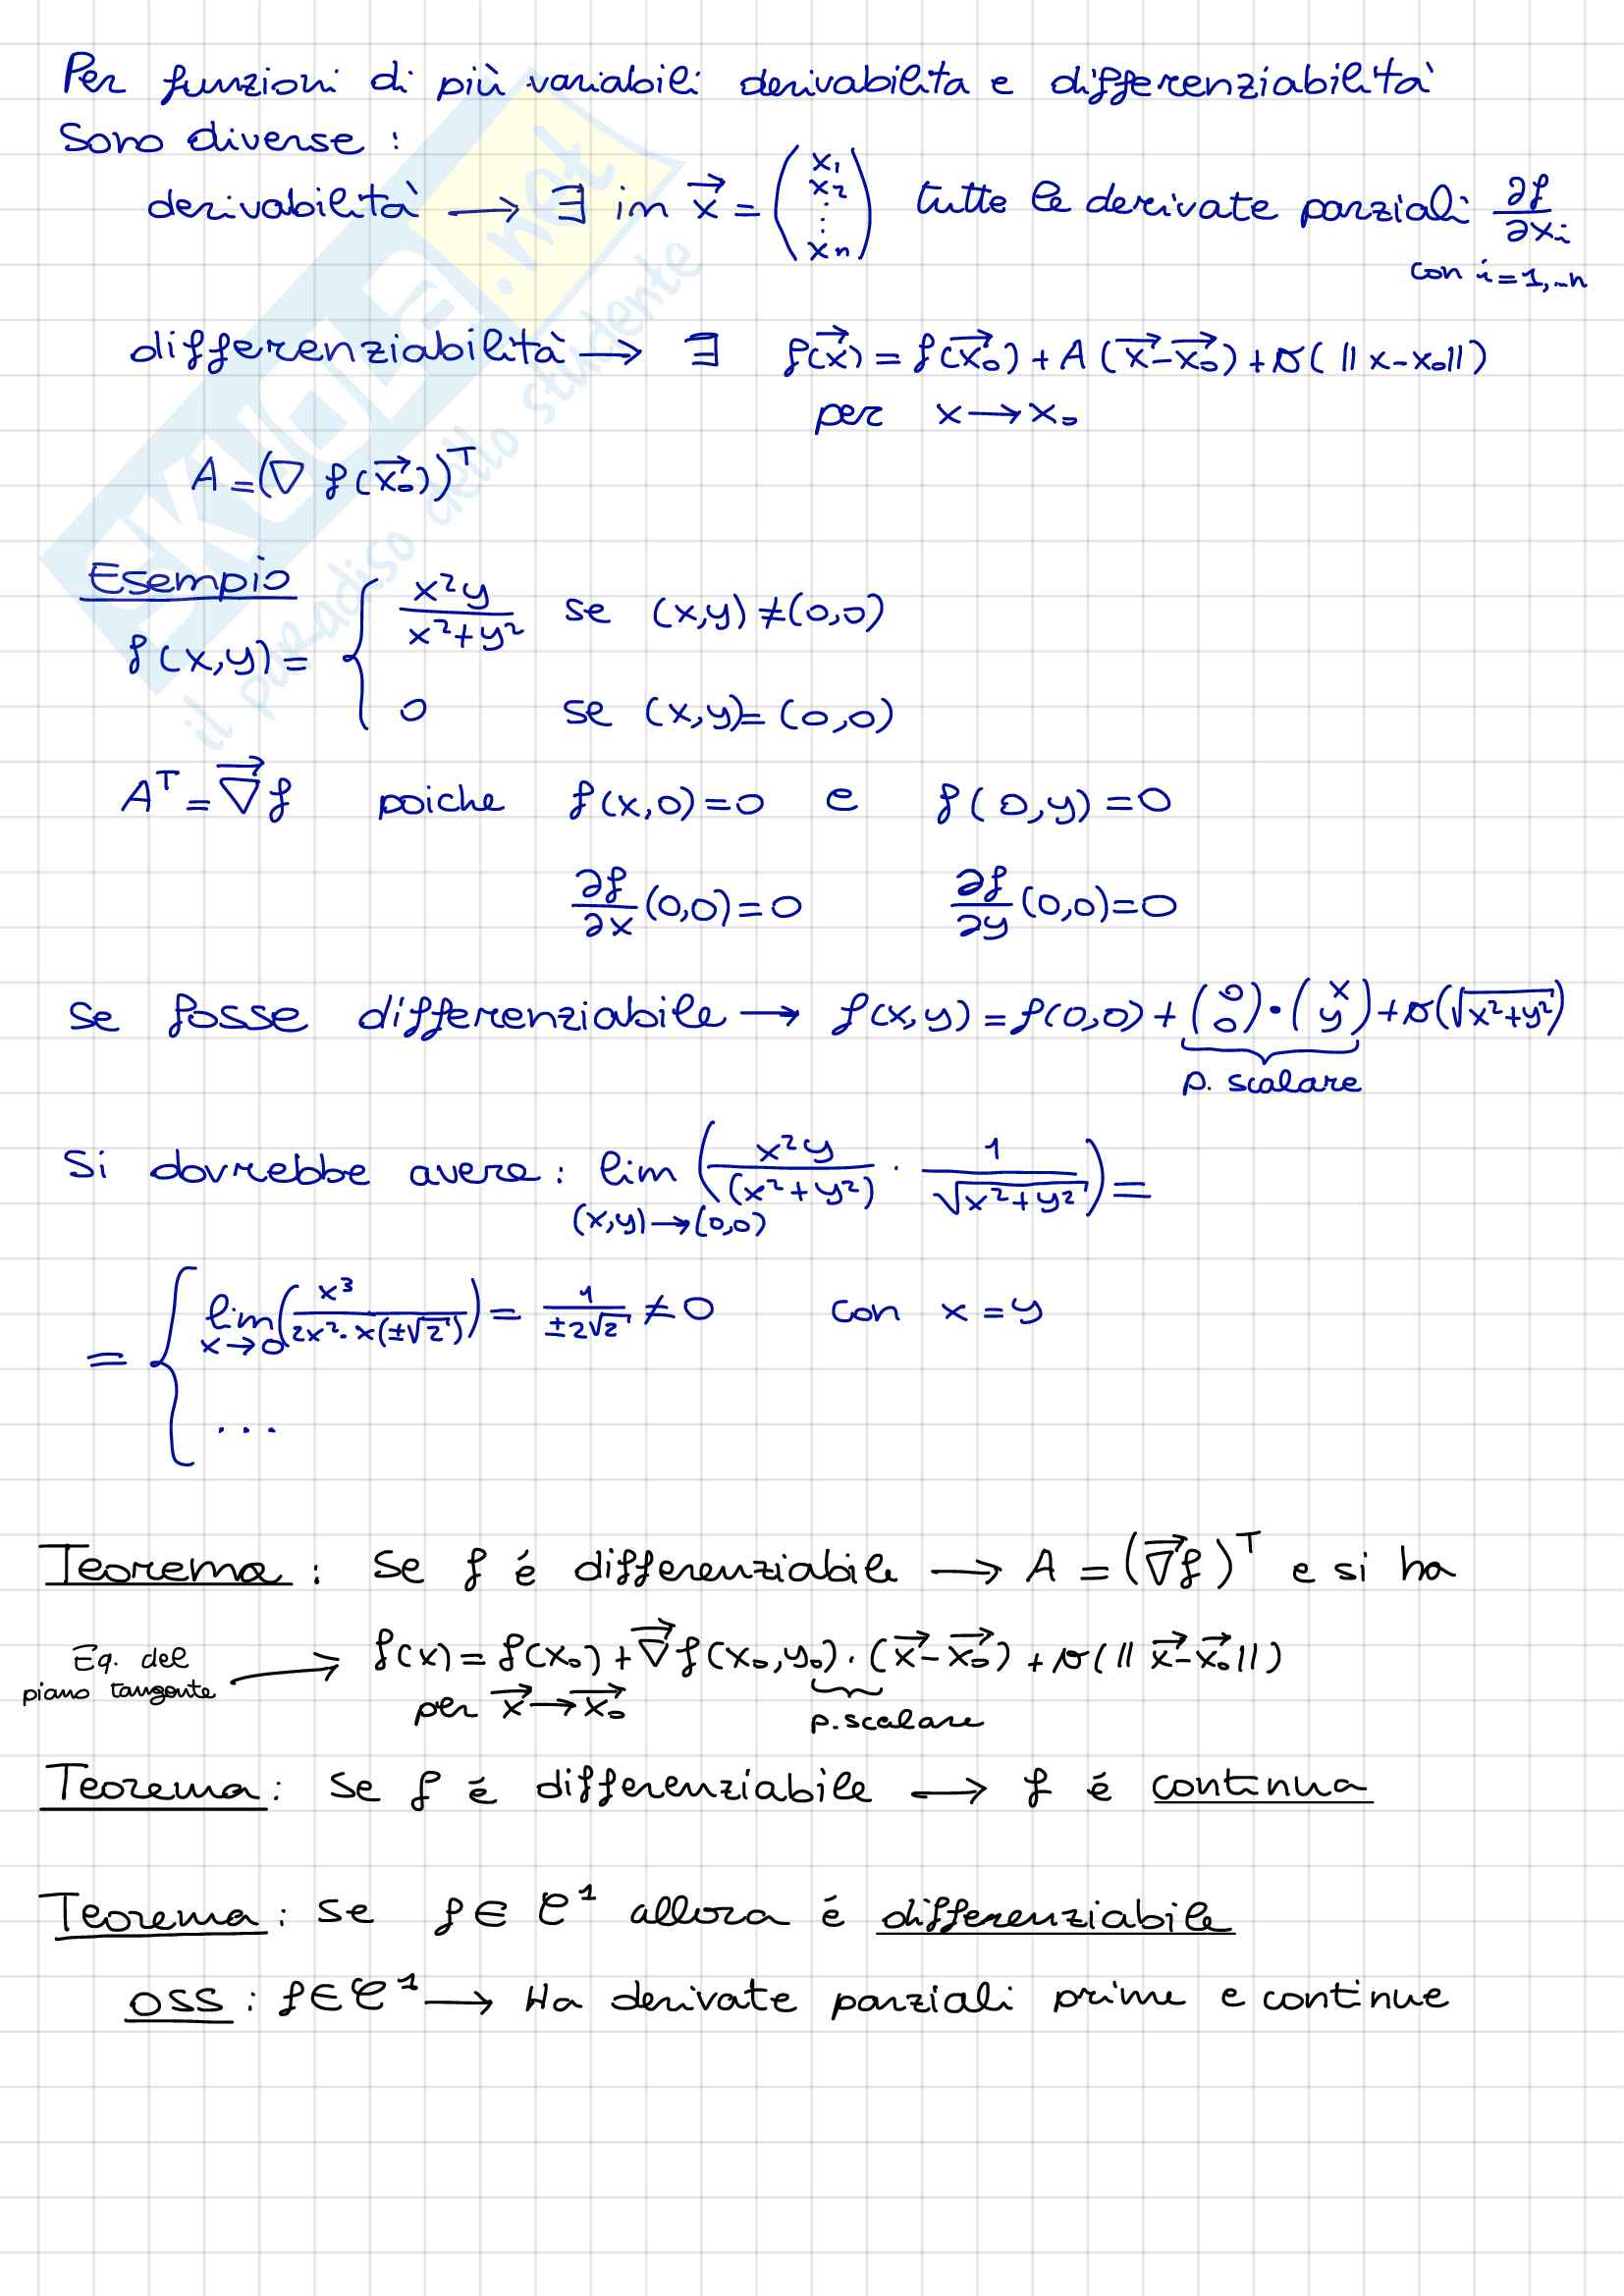 Per funzioni di più variabili derivabilita e differenziabilità
sono diverse :
derivabilità → ∃ in x⃗ = (x₁ x₂ ⋮ xₙ) tutte le derivate parziali ∂f/∂xᵢ
con i=1,..n
differenziabilità → ∃ f(x⃗) = f(x⃗₀) + A (x⃗-x⃗₀) + o( ||x-x₀||)
per x → x₀
A = (∇ f(x⃗₀))ᵀ
Esempio
f(x,y) = { x²y/(x²+y²) se (x,y) ≠ (0,0)
0 se (x,y) = (0,0)
Aᵀ = ∇⃗f poiche f(x,0)=0 e f(0,y)=0
∂f/∂x (0,0)=0 ∂f/∂y (0,0)=0
se fosse differenziabile → f(x,y) = f(0,0) + (0 0)·(x y) + o(√(x²+y²))
p. scalare
Si dovrebbe avere : lim (x²y/(x²+y²) · 1/√(x²+y²)) =
(x,y)→(0,0)
= { lim (x³/(2x²·x(±√2))) = 1/(±2√2) ≠ 0 con x = y
x→0
...
Teorema : Se f é differenziabile → A = (∇⃗f)ᵀ e si ha
Eq. del piano tangente → f(x) = f(x₀) + ∇⃗f(x₀,y₀)·(x⃗-x⃗₀) + o(||x⃗-x⃗₀||)
per x⃗ → x⃗₀ p.scalare
Teorema : Se f é differenziabile → f é continua
Teorema : Se f ∈ C¹ allora é differenziabile
OSS : f∈C¹ → Ha derivate parziali prime e continue
SKUOLA.net
il paradiso dello studente